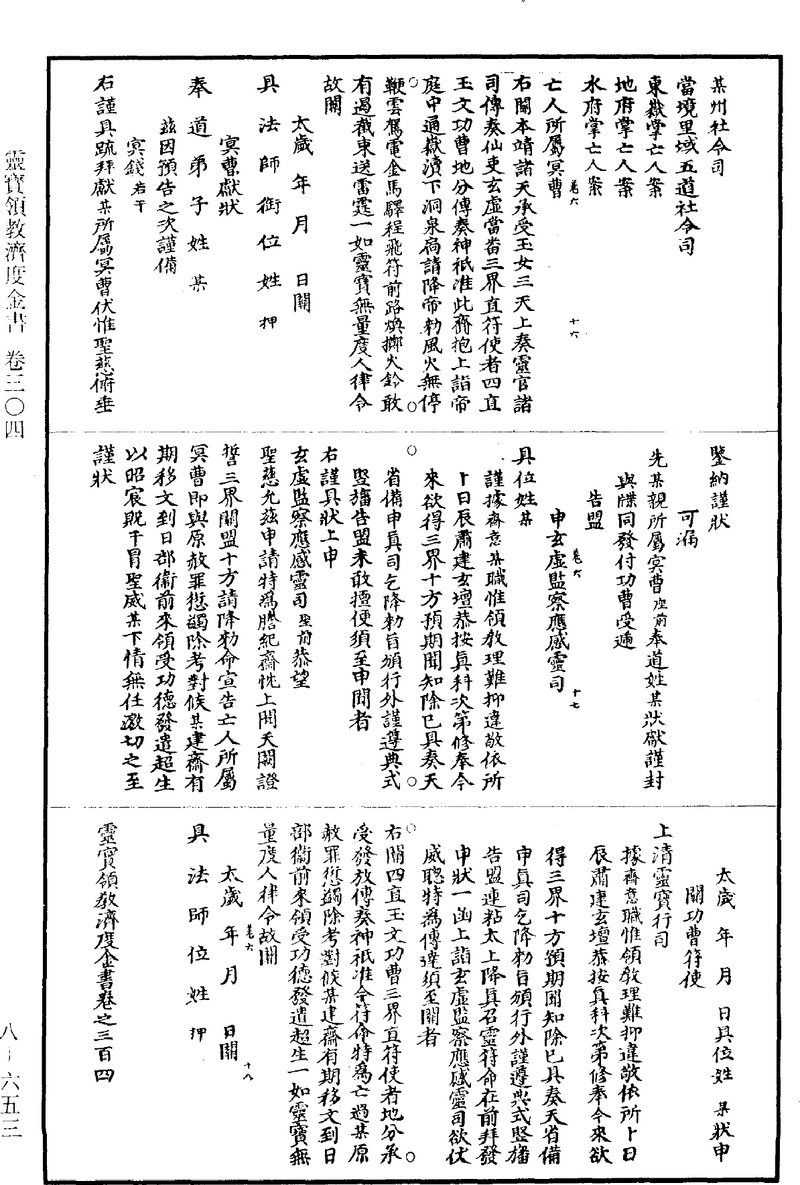 某州社令司
當境里域五道社令司
東嶽掌亡人案
地府掌亡人案
水府掌亡人案
亡人所屬冥曹
卷六 十六
右關本靖諸天承受玉女三天上奏靈官諸
司傳奏仙吏玄虛當畨三界直符使者四直
玉文功曹地分傳奏神祇准此齊抱上詣帝
庭中通嶽瀆下洞泉扃請降帝勑風火無停
鞭雲駕電金馬驛程飛符前路煥擲火鈴敢
有過截束送雷霆一如靈寶無量度人律令
故關
太歲 年 月 日關
具 法 師 銜 位 姓 押
冥曹獻狀
奉 道 弟 子 姓 某
茲因預告之次謹備
冥錢若干
右謹具疏拜獻某所屬冥曹伏惟聖慈俯垂
鑒納謹狀
可漏
先某親所屬冥曹座前奉道姓某狀獻謹封
與牒同發付功曹受遞
告盟
申玄虛監察應感靈司
卷六 十七
具位姓某
謹據齋意某職惟領教理難抑違敬依所
卜日辰肅建玄壇恭按眞科次第修奉今
來欲得三界十方預期聞知除已具奏天
省備申眞司乞降勑旨頒行外謹遵典式
竪旛告盟未敢擅便須至申聞者
右謹具狀上申
玄虛監察應感靈司聖前恭望
聖慈允茲申請特爲謄紀齋忱上聞天闕證
誓三界關盟十方請降勑命宣告亡人所屬
冥曹即與原赦罪愆蠲除考對候某建齋有
期移文到日部衞前來領受功德發遣超生
以昭宸旣干冒聖威某下情無任激切之至
謹狀
太歲 年 月 日具位姓 某狀申
關功曹符使
上清靈寶行司
據齋意職惟領教理難抑違敬依所卜日
辰肅建玄壇恭按眞科次第修奉今來欲
得三界十方預期聞知除已具奏天省備
申眞司乞降勑旨頒行外謹遵典式竪旛
告盟連粘太上降眞召靈符命在前拜發
申狀一函上詣玄虛監察應感靈司欲仗
威聰特爲傳達須至關者
右關四直玉文功曹三界直符使者地分承
受發放傳奏神祇准令符命特爲亡過某原
赦罪愆蠲除考對候某建齋有期移文到日
部衞前來領受功德發遣超生一如靈寶無
量度人律令故關
卷六 十八
太歲 年 月 日關
具 法 師 位 姓 押
靈寶領教濟度金書卷之三百四
靈寶領教濟度金書 卷三〇四
八-六五三